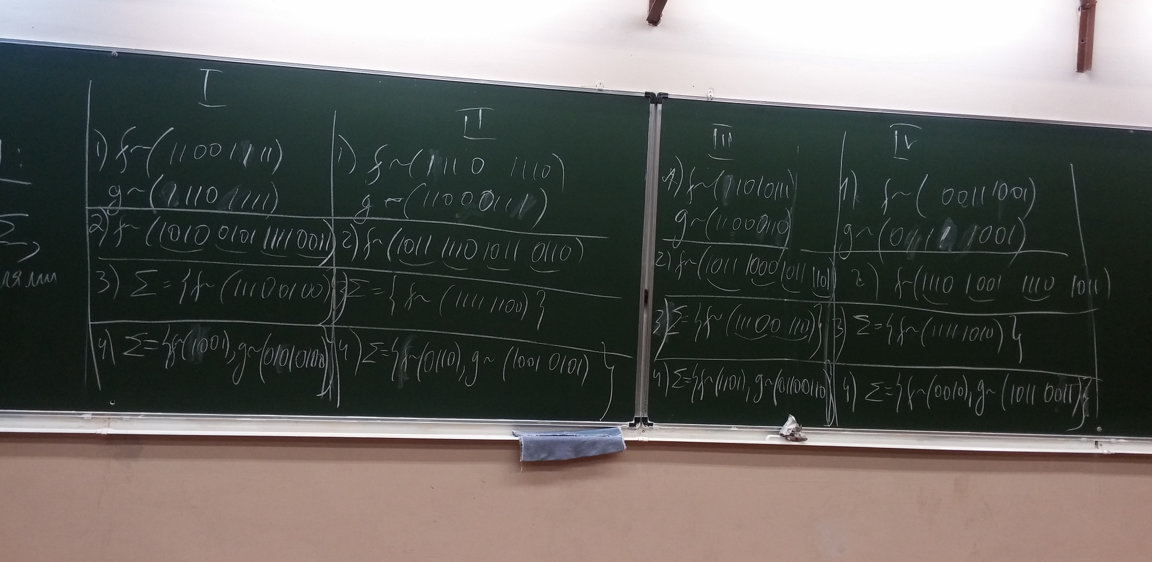 I
1) f~(11001111)
g~(1110 1111)
2) f~(1010 0101 1111 0011)
3) Σ={f~(11100100)}
4) Σ={f~(1001), g~(01010100)}
II
1) f~(1110 1110)
2) f~(1011 1110 1011 0110)
3) Σ={f~(1111 1100)}
4) Σ={f~(0110), g~(1001 0101)}
III
1) f~(11101011)
g~(1100010)
2) f~(1011 1000 1011 1101)
3) Σ={f~(11100 110)}
4) Σ={f~(1101), g~(01100110)}
IV
1) f~(00111001)
2) f~(1110 1001 1110 1011)
3) Σ={f~(1111 1010)}
4) Σ={f~(0010), g~(1011 0011)}